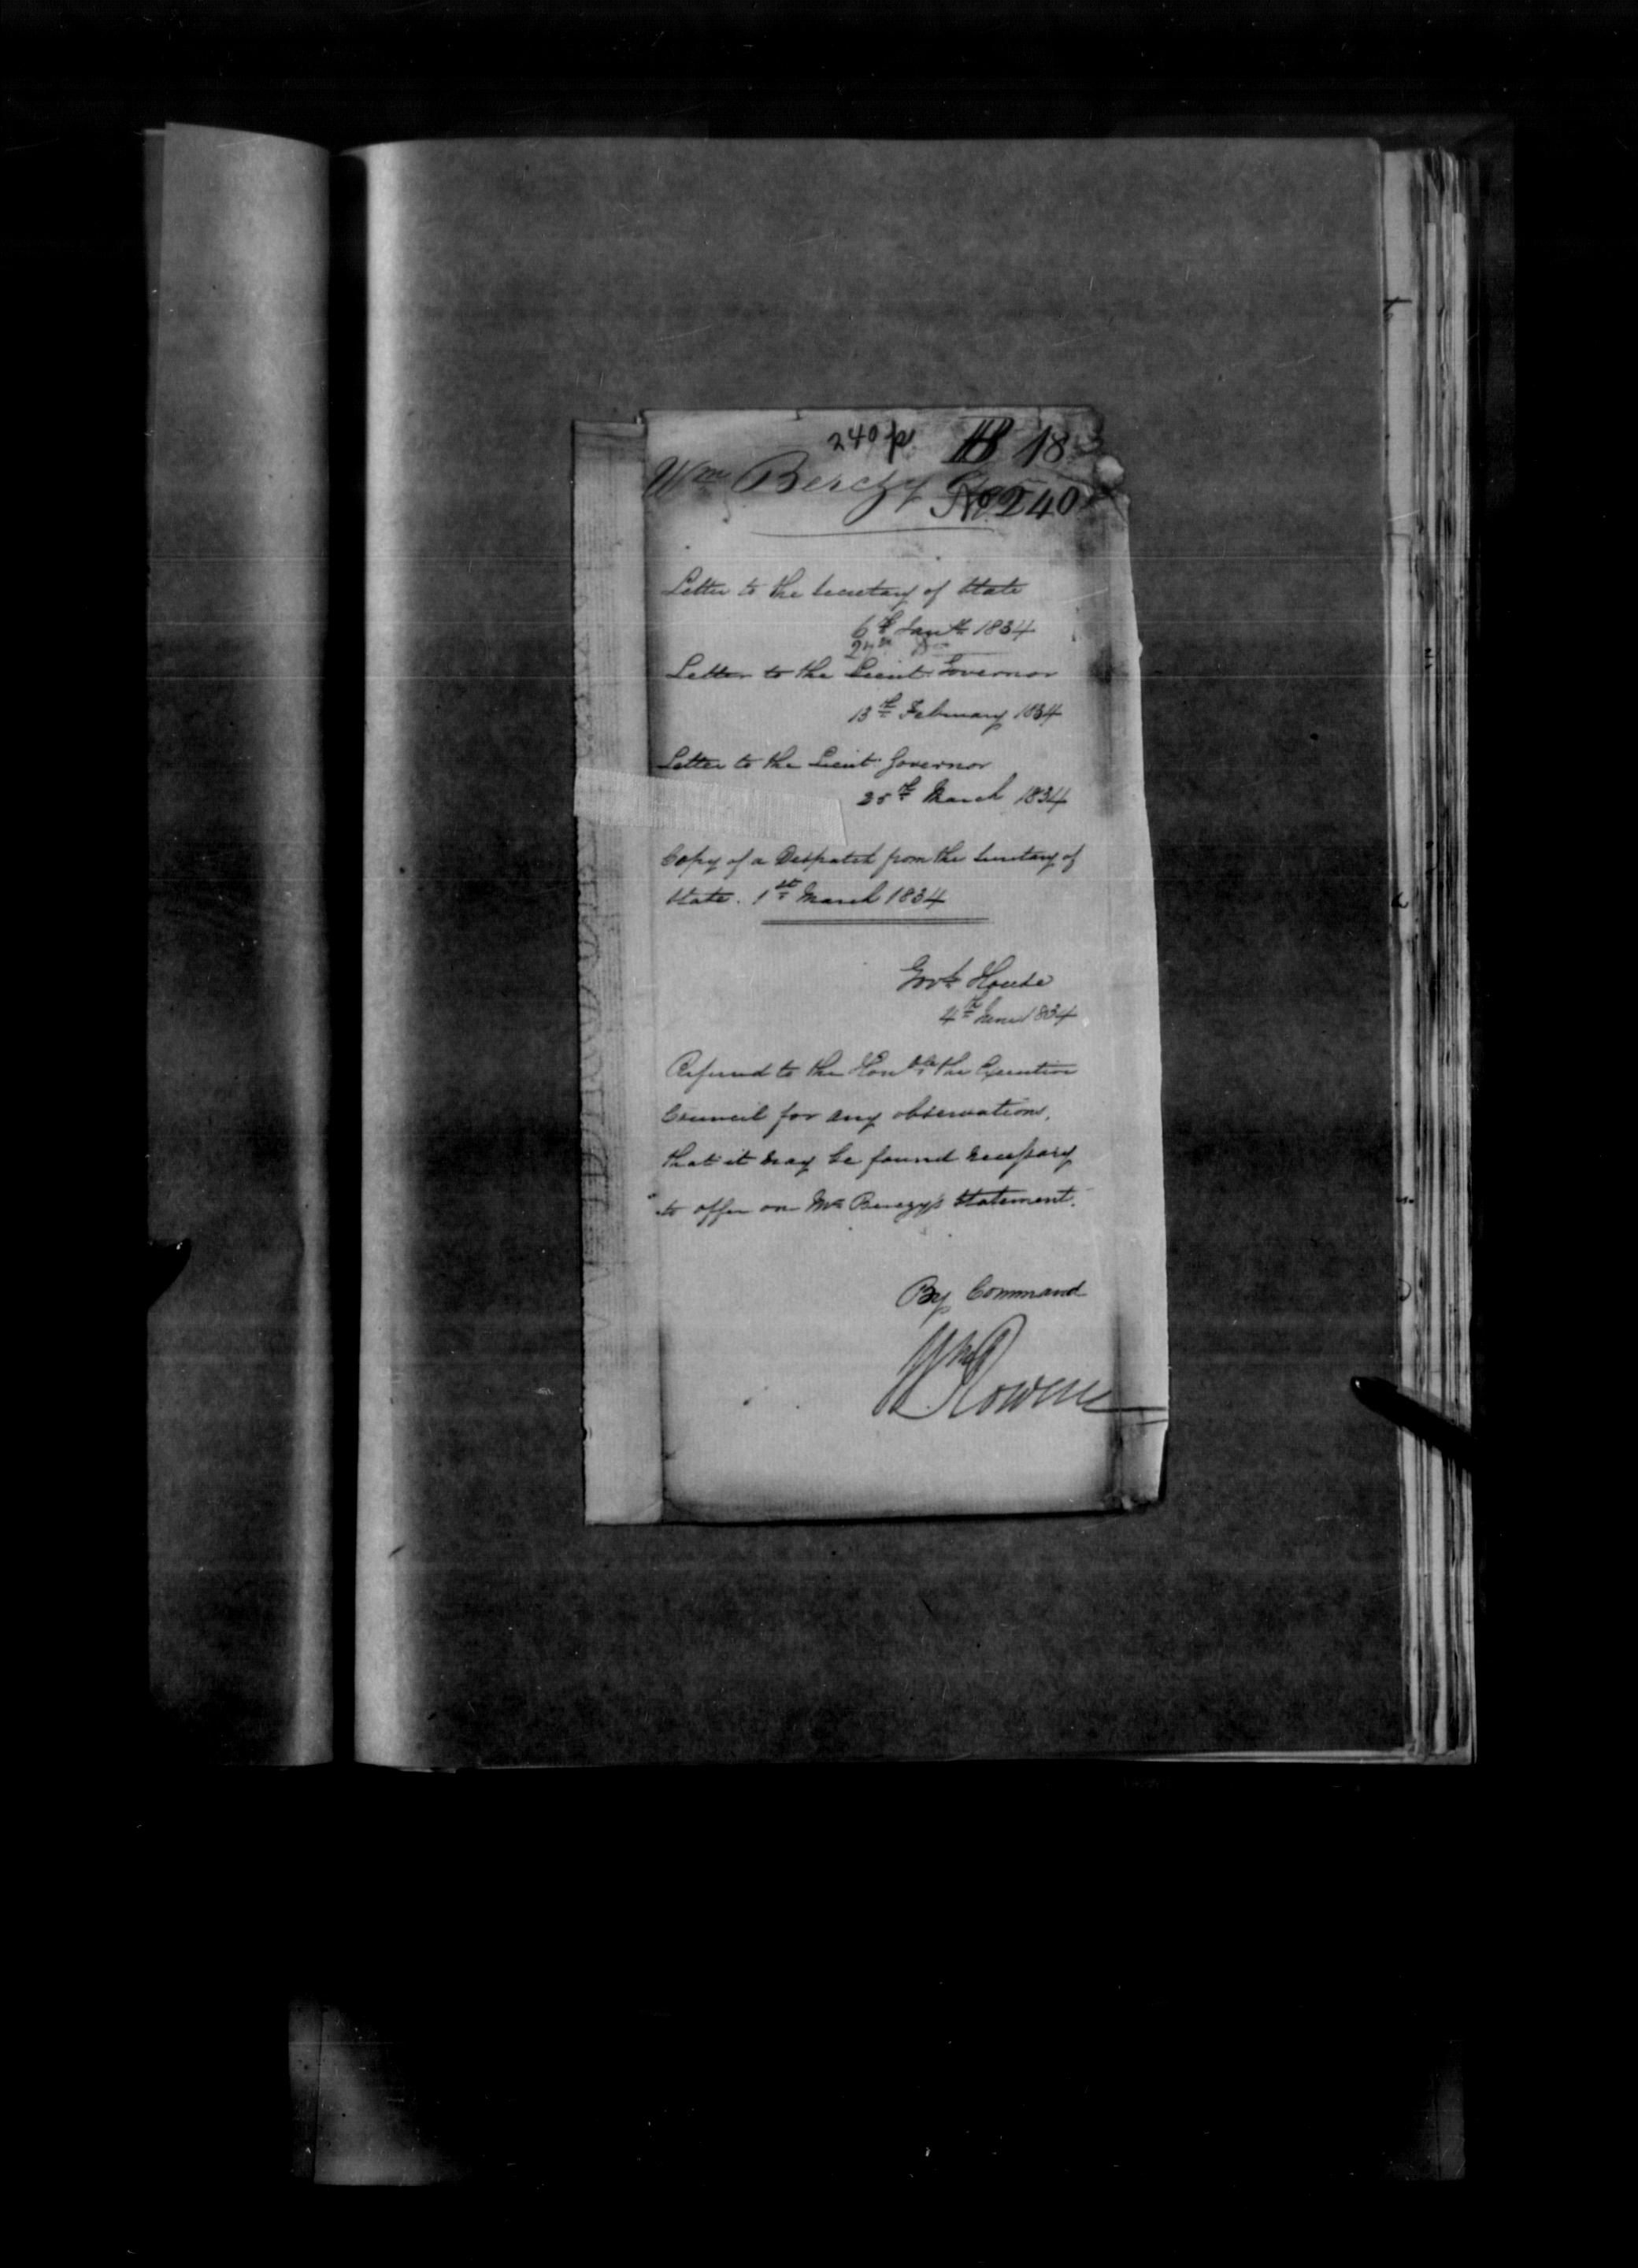 240 p. B 18
Wm Berczy
No 240
Letter to the Secretary of State
6th Jany 1834
27th Do
Letter to the Lieut Governor
13th February 1834
Letter to the Lieut Governor
25th March 1834
Copy of a Despatch from the Secretary of
State. 1st March 1834
Govt House
4th June 1834
Referred to the Honble the Executive
Council for any observations,
that it may be found necessary
to offer on Mr Berczy's Statement.
By Command
Wm Rowan